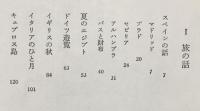 Ⅱ 旅の話
スペインの話 7
マドリッド 7
プラド 20
セビリア 24
アルハンブラ 31
バスと財布 40
夏のエジプト 52
ドイツ遊覧 63
イギリスの秋 84
イタリアのひと月 101
キュプロス島 120